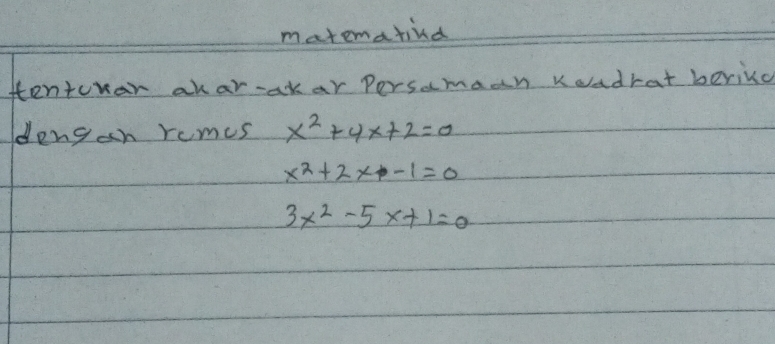 matematika
tentukan akar-akar Persamaan kuadrat beriku
dengan rumus x² + 4x + 2 = 0
x² + 2x - 1 = 0
3x² - 5x + 1 = 0